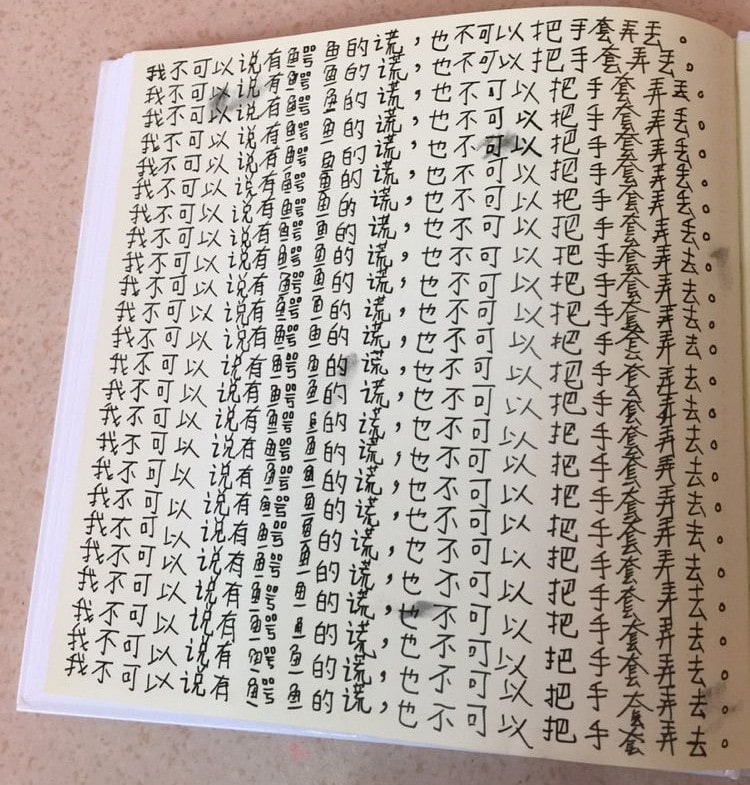 我不可以说有鳄鱼的谎，也不可以把手套弄丢。
我不可以说有鳄鱼的谎，也不可以把手套弄丢。
我不可以说有鳄鱼的谎，也不可以把手套弄丢。
我不可以说有鳄鱼的谎，也不可以把手套弄丢。
我不可以说有鳄鱼的谎，也不可以把手套弄丢。
我不可以说有鳄鱼的谎，也不可以把手套弄丢。
我不可以说有鳄鱼的谎，也不可以把手套弄丢。
我不可以说有鳄鱼的谎，也不可以把手套弄去。
我不可以说有鳄鱼的谎，也不可以把手套弄去。
我不可以说有鳄鱼的谎，也不可以把手套弄去。
我不可以说有鳄鱼的谎，也不可以把手套弄去。
我不可以说有鳄鱼的谎，也不可以把手套弄去。
我不可以说有鳄鱼的谎，也不可以把手套弄去。
我不可以说有鳄鱼的谎，也不可以把手套弄去。
我不可以说有鳄鱼的谎，也不可以把手套弄去。
我不可以说有鳄鱼的谎，也不可以把手套弄去。
我不可以说有鳄鱼的谎，也不可以把手套弄去。
我不可以说有鳄鱼的谎，也不可以把手套弄去。
我不可以说有鳄鱼的谎，也不可以把手套弄去。
我不可以说有鳄鱼的谎，也不可以把手套弄去。
我不可以说有鳄鱼的谎，也不可以把手套弄去。
我不可以说有鳄鱼的谎，也不可以把手套弄去。
我不可以说有鳄鱼的谎，也不可以把手套弄去。
我不可以说有鳄鱼的谎，也不可以把手套弄去。